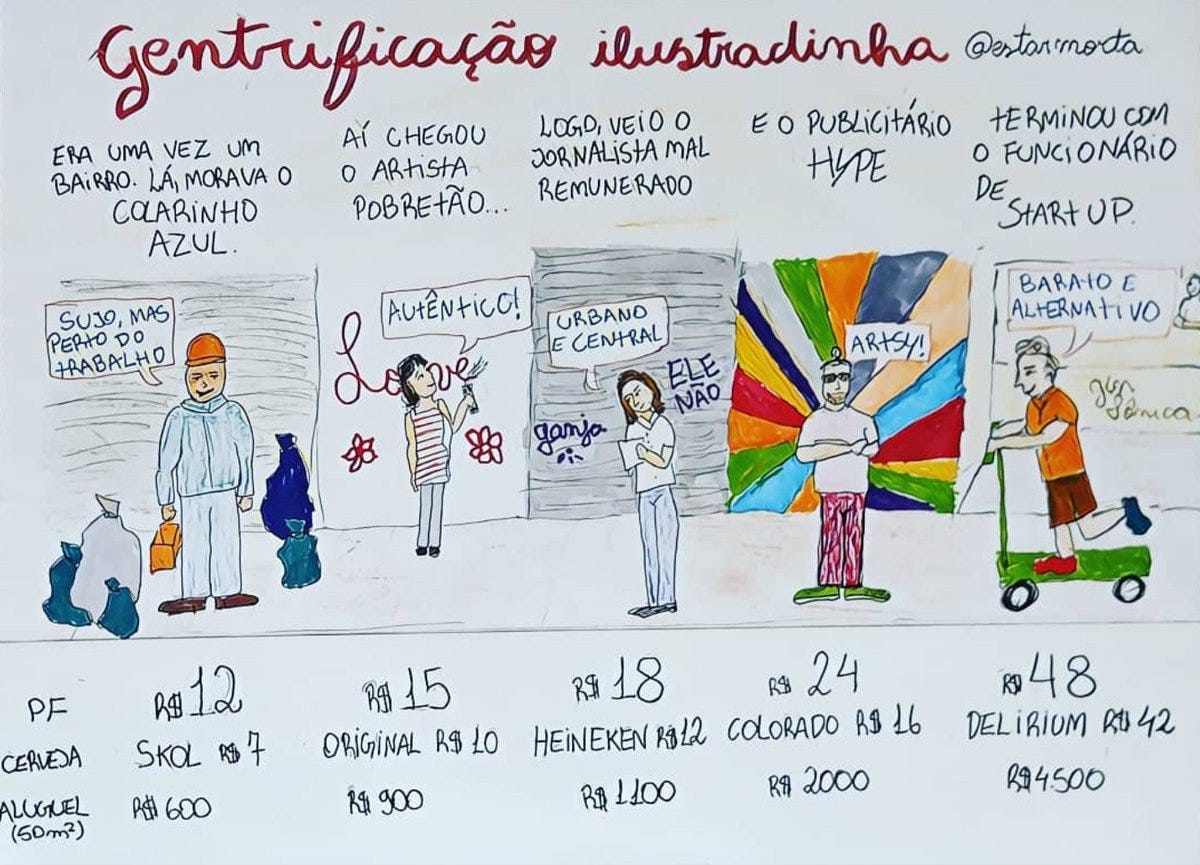 Gentrificação ilustradinha @estarmorta
ERA UMA VEZ UM
BAIRRO. LÁ, MORAVA O
COLARINHO
AZUL.
AÍ CHEGOU
O ARTISTA
POBRETÃO...
LOGO, VEIO O
JORNALISTA MAL
REMUNERADO
E O PUBLICITÁRIO
HYPE
TERMINOU COM
O FUNCIONÁRIO
DE
STARTUP.
SUJO, MAS
PERTO DO
TRABALHO
AUTÊNTICO!
Love
URBANO
E CENTRAL
ELE
NÃO
ganja
ARTSY!
BARATO E
ALTERNATIVO
PF R$12 R$15 R$18 R$24 R$48
CERVEJA SKOL R$7 ORIGINAL R$10 HEINEKEN R$12 COLORADO R$16 DELIRIUM R$42
ALUGUEL R$600 R$900 R$1100 R$2000 R$4.500
(50m²)